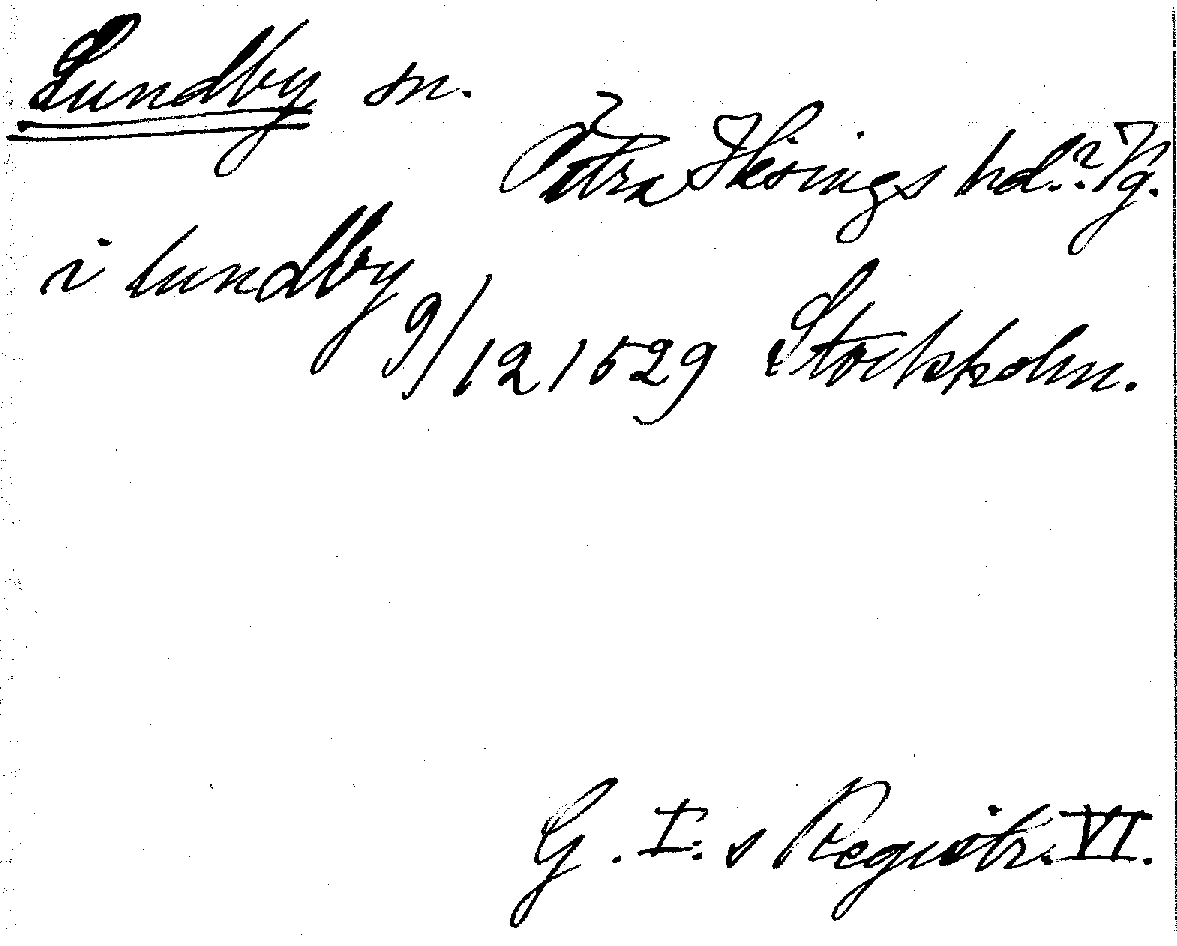 Lundby sn.
Östra Hisings hd.? Vg.
i lundby
9/12 1529 Stockholm.
G. I. s Registr. VI.